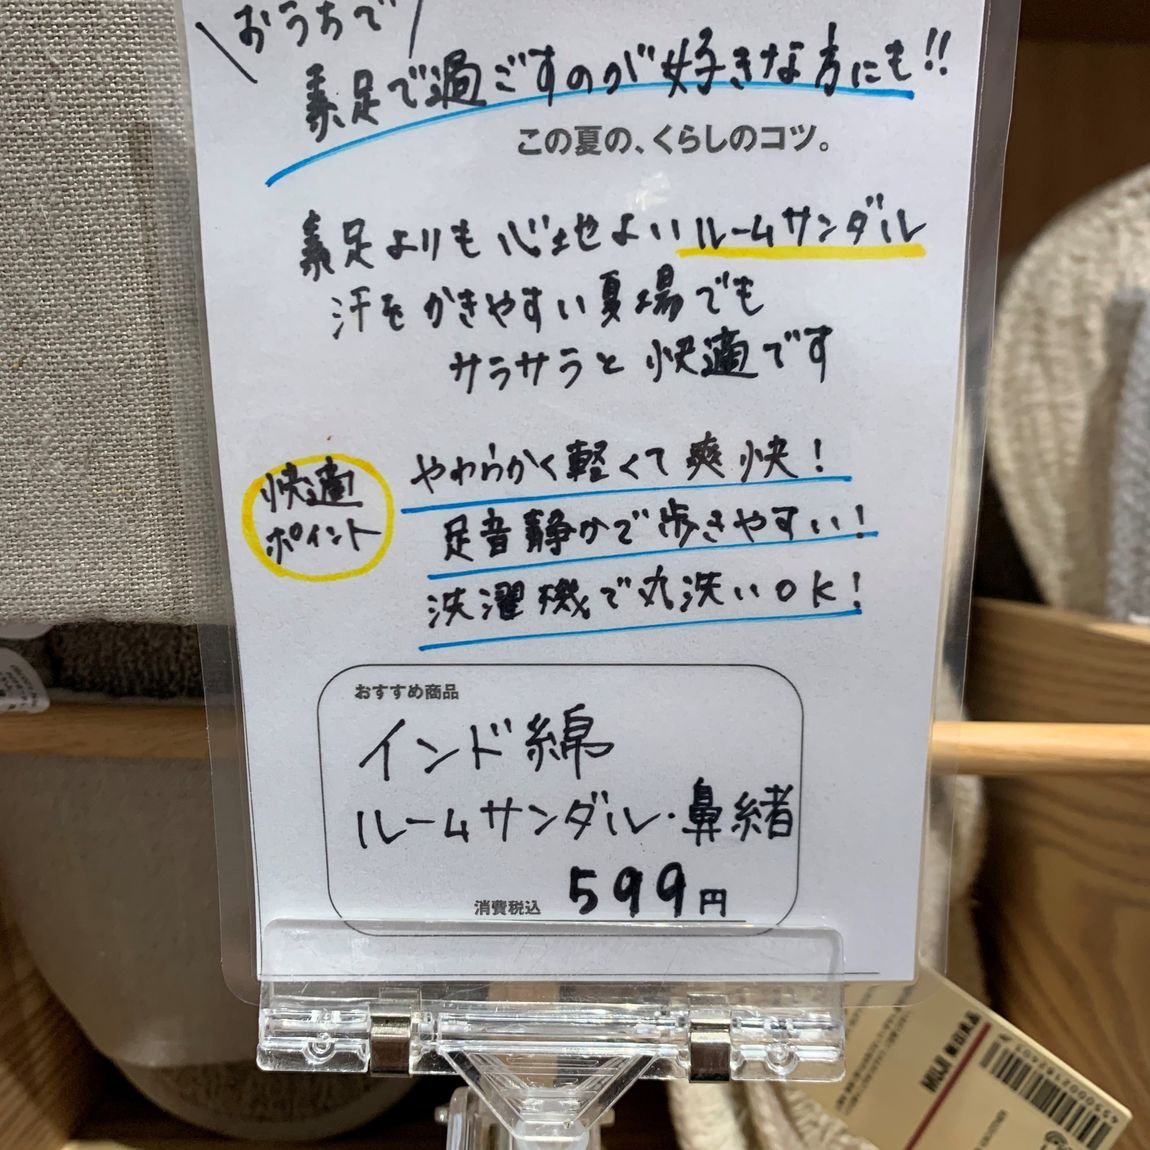 おうちで
素足で過ごすのが好きな方にも!!
この夏の、くらしのコツ。
素足よりも心地よいルームサンダル
汗をかきやすい夏場でも
サラサラと快適です
快適
ポイント
やわらかく軽くて爽快!
足音静かで歩きやすい!
洗濯機で丸洗いOK!
おすすめ商品
インド綿
ルームサンダル・鼻緒
消費税込 599円
MUJI 無印良品